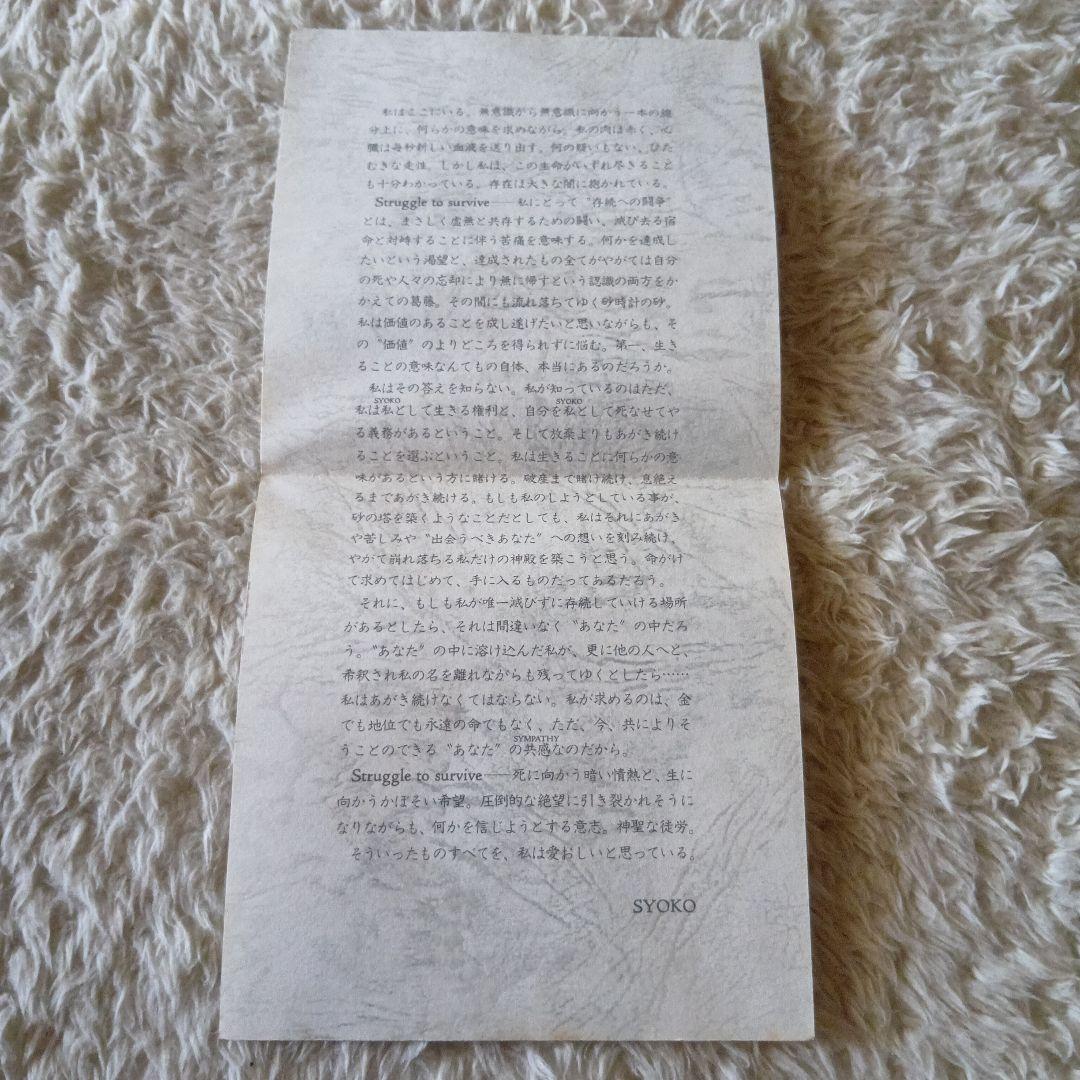 私はここにいる。無意識から無意識に向かう一本の線
分上に、何らかの意味を求めながら。私の肉は赤く、心
臓は毎秒新しい血液を送り出す。何の疑いもない、ひた
むきな走性。しかし私は、この生命がいずれ尽きること
も十分わかっている。存在は大きな闇に抱かれている。
Struggle to survive——私にとって〝存続への闘争〞
とは、まさしく虚無と共存するための闘い、滅び去る宿
命と対峙することに伴う苦痛を意味する。何かを達成し
たいという渇望と、達成されたもの全てがやがては自分
の死や人々の忘却により無に帰すという認識の両方をか
かえての葛藤。その間にも流れ落ちてゆく砂時計の砂。
私は価値のあることを成し遂げたいと思いながらも、そ
の〝価値〞のよりどころを得られずに悩む。第一、生き
ることの意味なんてもの自体、本当にあるのだろうか。
私はその答えを知らない。私が知っているのはただ、
SYOKO SYOKO
私は私として生きる権利と、自分を私として死なせてや
る義務があるということ。そして放棄よりもあがき続け
ることを選ぶということ。私は生きることに何らかの意
味があるという方に賭ける。破産まで賭け続け、息絶え
るまであがき続ける。もしも私のしようとしている事が、
砂の塔を築くようなことだとしても、私はそれにあがき
や苦しみや〝出会うべきあなた〞への想いを刻み続け、
やがて崩れ落ちる私だけの神殿を築こうと思う。命がけ
で求めてはじめて、手に入るものだってあるだろう。
それに、もしも私が唯一滅びずに存続していける場所
があるとしたら、それは間違いなく〝あなた〞の中だろ
う。〝あなた〞の中に溶け込んだ私が、更に他の人へと、
希釈され私の名を離れながらも残ってゆくとしたら……
私はあがき続けなくてはならない。私が求めるのは、金
でも地位でも永遠の命でもなく、ただ、今、共によりそ
SYMPATHY
うことのできる〝あなた〞の共感なのだから。
Struggle to survive——死に向かう暗い情熱と、生に
向かうかぼそい希望。圧倒的な絶望に引き裂かれそうに
なりながらも、何かを信じようとする意志。神聖な徒労。
そういったものすべてを、私は愛おしいと思っている。
SYOKO